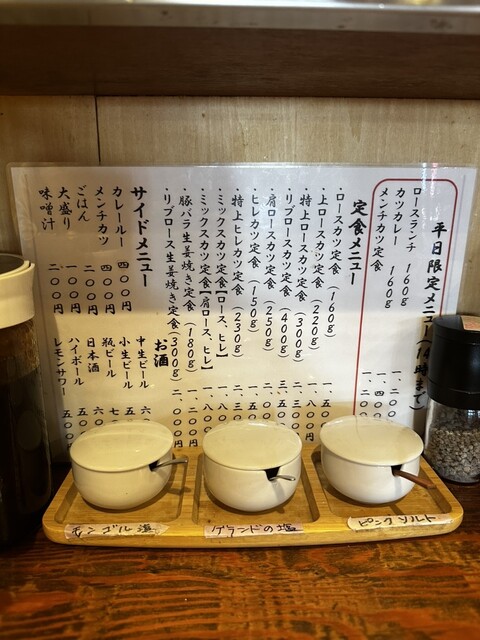 平日限定メニュー(14時まで)
ロースランチ 160g 一、二〇
カツカレー 160g 一、四〇
メンチカツ定食 一、二〇
定食メニュー
・ロースカツ定食(160g) 一、五〇
・上ロースカツ定食(220g) 一、八〇〇
・特上ロースカツ定食(300g) 二、五〇
・リブロースカツ定食(400g) 三、五〇
・肩ロースカツ定食(250g) 二、〇〇
・ヒレカツ定食(150g) 一、五〇
・特上ヒレカツ定食(230g) 二、三〇
・ミックスカツ定食【ロース、ヒレ】 一、八〇
・ミックスカツ定食【肩ロース、ヒレ】 一、八〇
・豚バラ生姜焼き定食(180g) 一、二〇
・リブロース生姜焼き定食(300g) 二、〇〇
サイドメニュー
カレールー 四〇〇円
メンチカツ 四〇〇円
ごはん 二〇〇円
大盛り 一〇〇円
味噌汁 二〇〇円
お酒
中生ビール 六
小生ビール 五
瓶ビール 七
日本酒 六〇
ハイボール 五〇
レモンサワー 五〇
モンゴル塩
ゲランドの塩
ピンクソルト